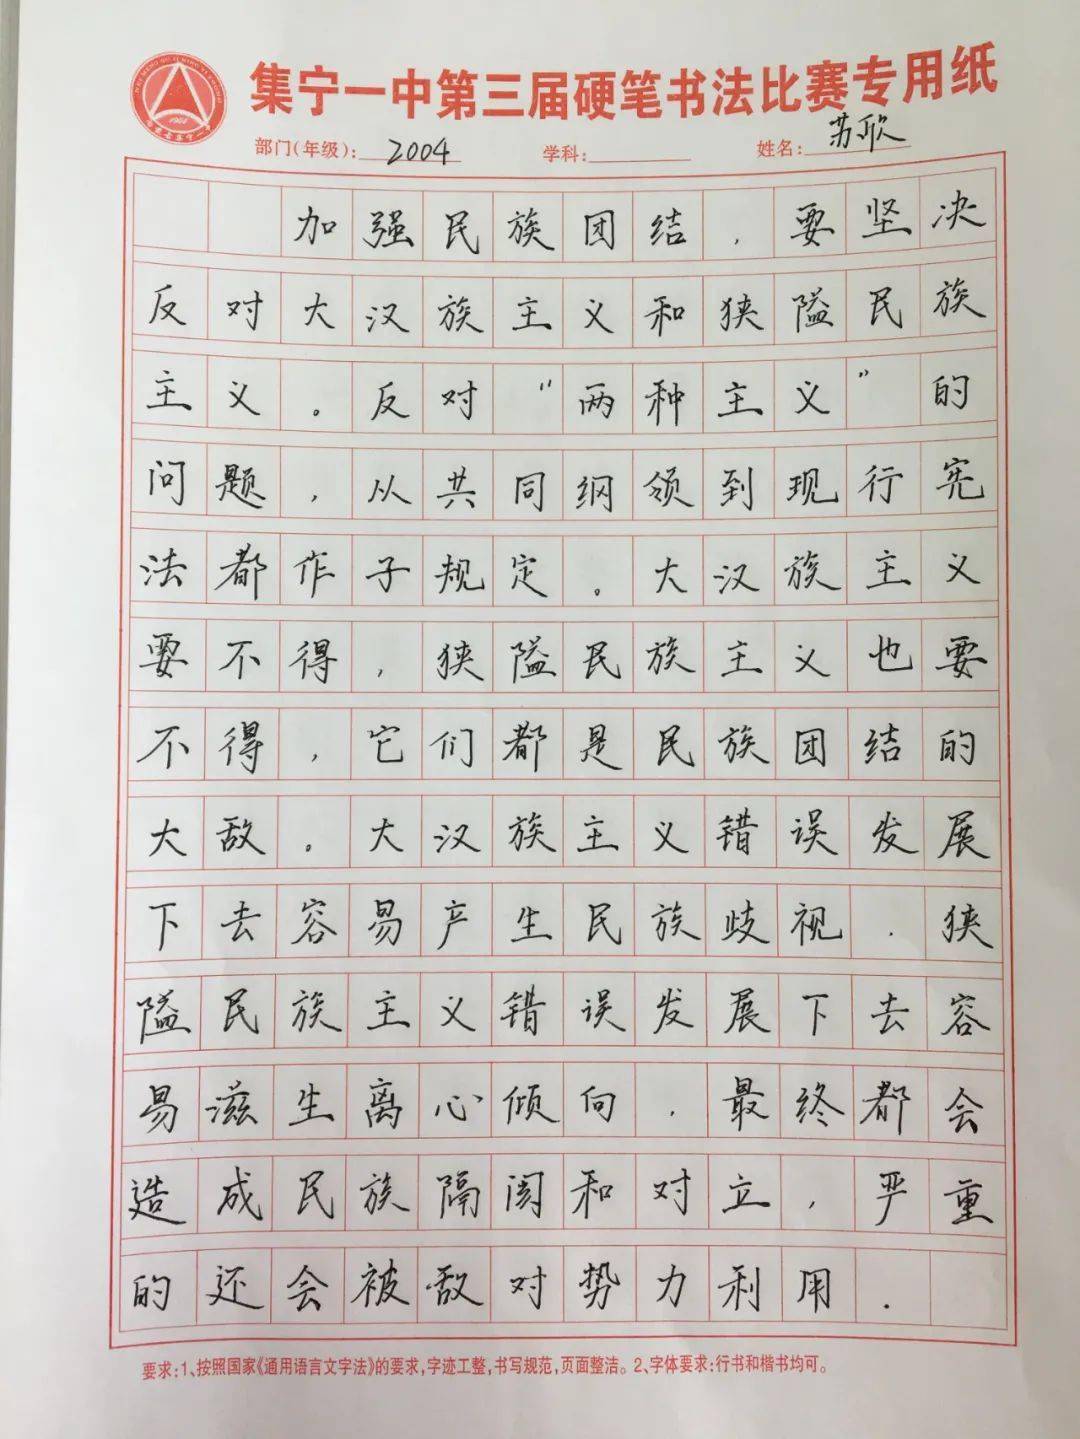 集宁一中第三届硬笔书法比赛专用纸
部门(年级): 2004 学科: 姓名: 苏欣
加强民族团结,要坚决
反对大汉族主义和狭隘民族
主义。反对“两种主义”的
问题,从共同纲领到现行宪
法都作子规定。大汉族主义
要不得,狭隘民族主义也要
不得,它们都是民族团结的
大敌。大汉族主义错误发展
下去容易产生民族歧视.狭
隘民族主义错误发展下去容
易滋生离心倾向.最终都会
造成民族隔阂和对立,严重
的还会被敌对势力利用.
要求:1、按照国家《通用语言文字法》的要求,字迹工整,书写规范,页面整洁。2、字体要求:行书和楷书均可。